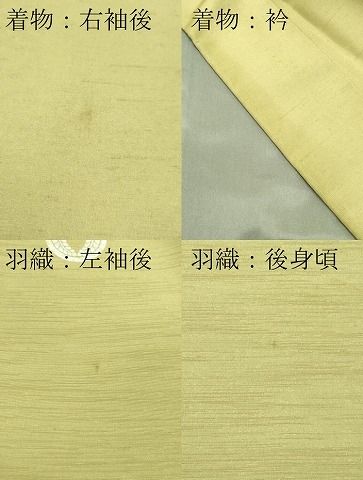 着物：右袖後
着物：衿
羽織：左袖後
羽織：後身頃